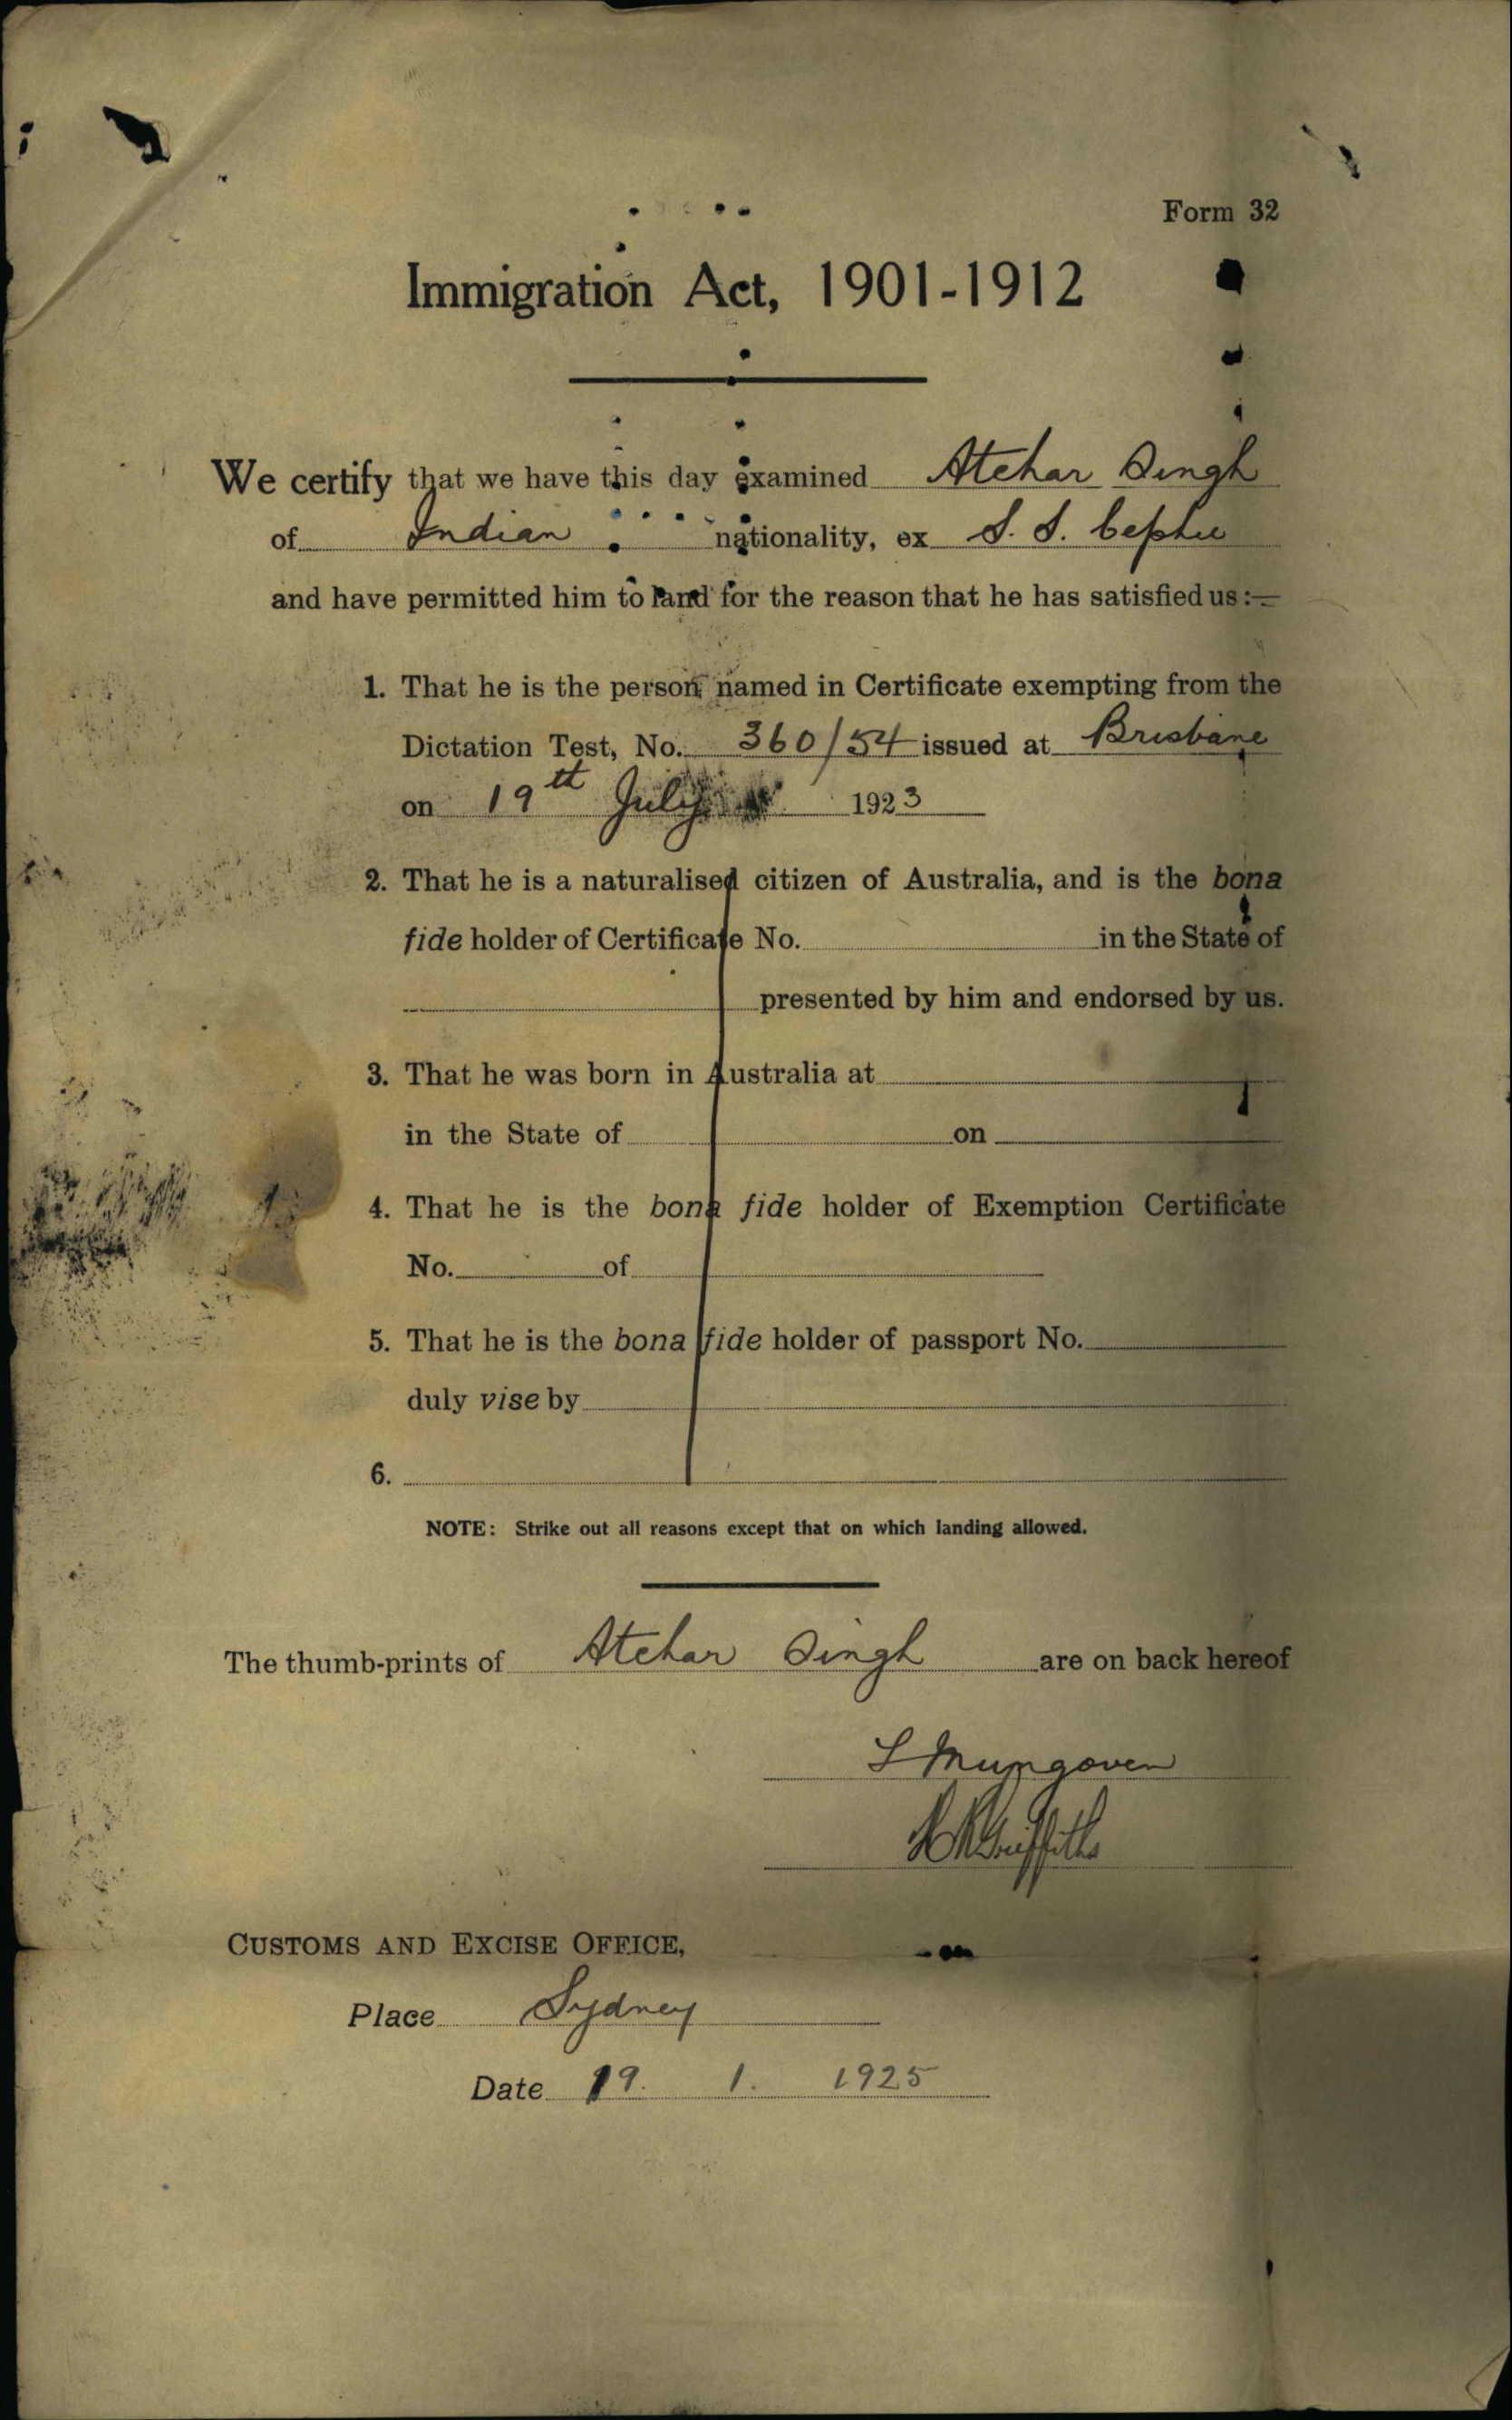 Form 32
Immigration Act, 1901-1912
We certify that we have this day examined Atchar Singh
of Indian nationality, ex S. S.
and have permitted him to land for the reason that he has satisfied us:—
1. That he is the person named in Certificate exempting from the
Dictation Test, No. 360/54 issued at Brisbane
on 19th July 1923
2. That he is a naturalised citizen of Australia, and is the bona
fide holder of Certificate No. in the State of
presented by him and endorsed by us.
3. That he was born in Australia at
in the State of on
4. That he is the bona fide holder of Exemption Certificate
No. of
5. That he is the bona fide holder of passport No.
duly vise by
6.
NOTE: Strike out all reasons except that on which landing allowed.
The thumb-prints of Atchar Singh are on back hereof
L Mungoven
Griffiths
CUSTOMS AND EXCISE OFFICE,
Place Sydney
Date 19. 1. 1925